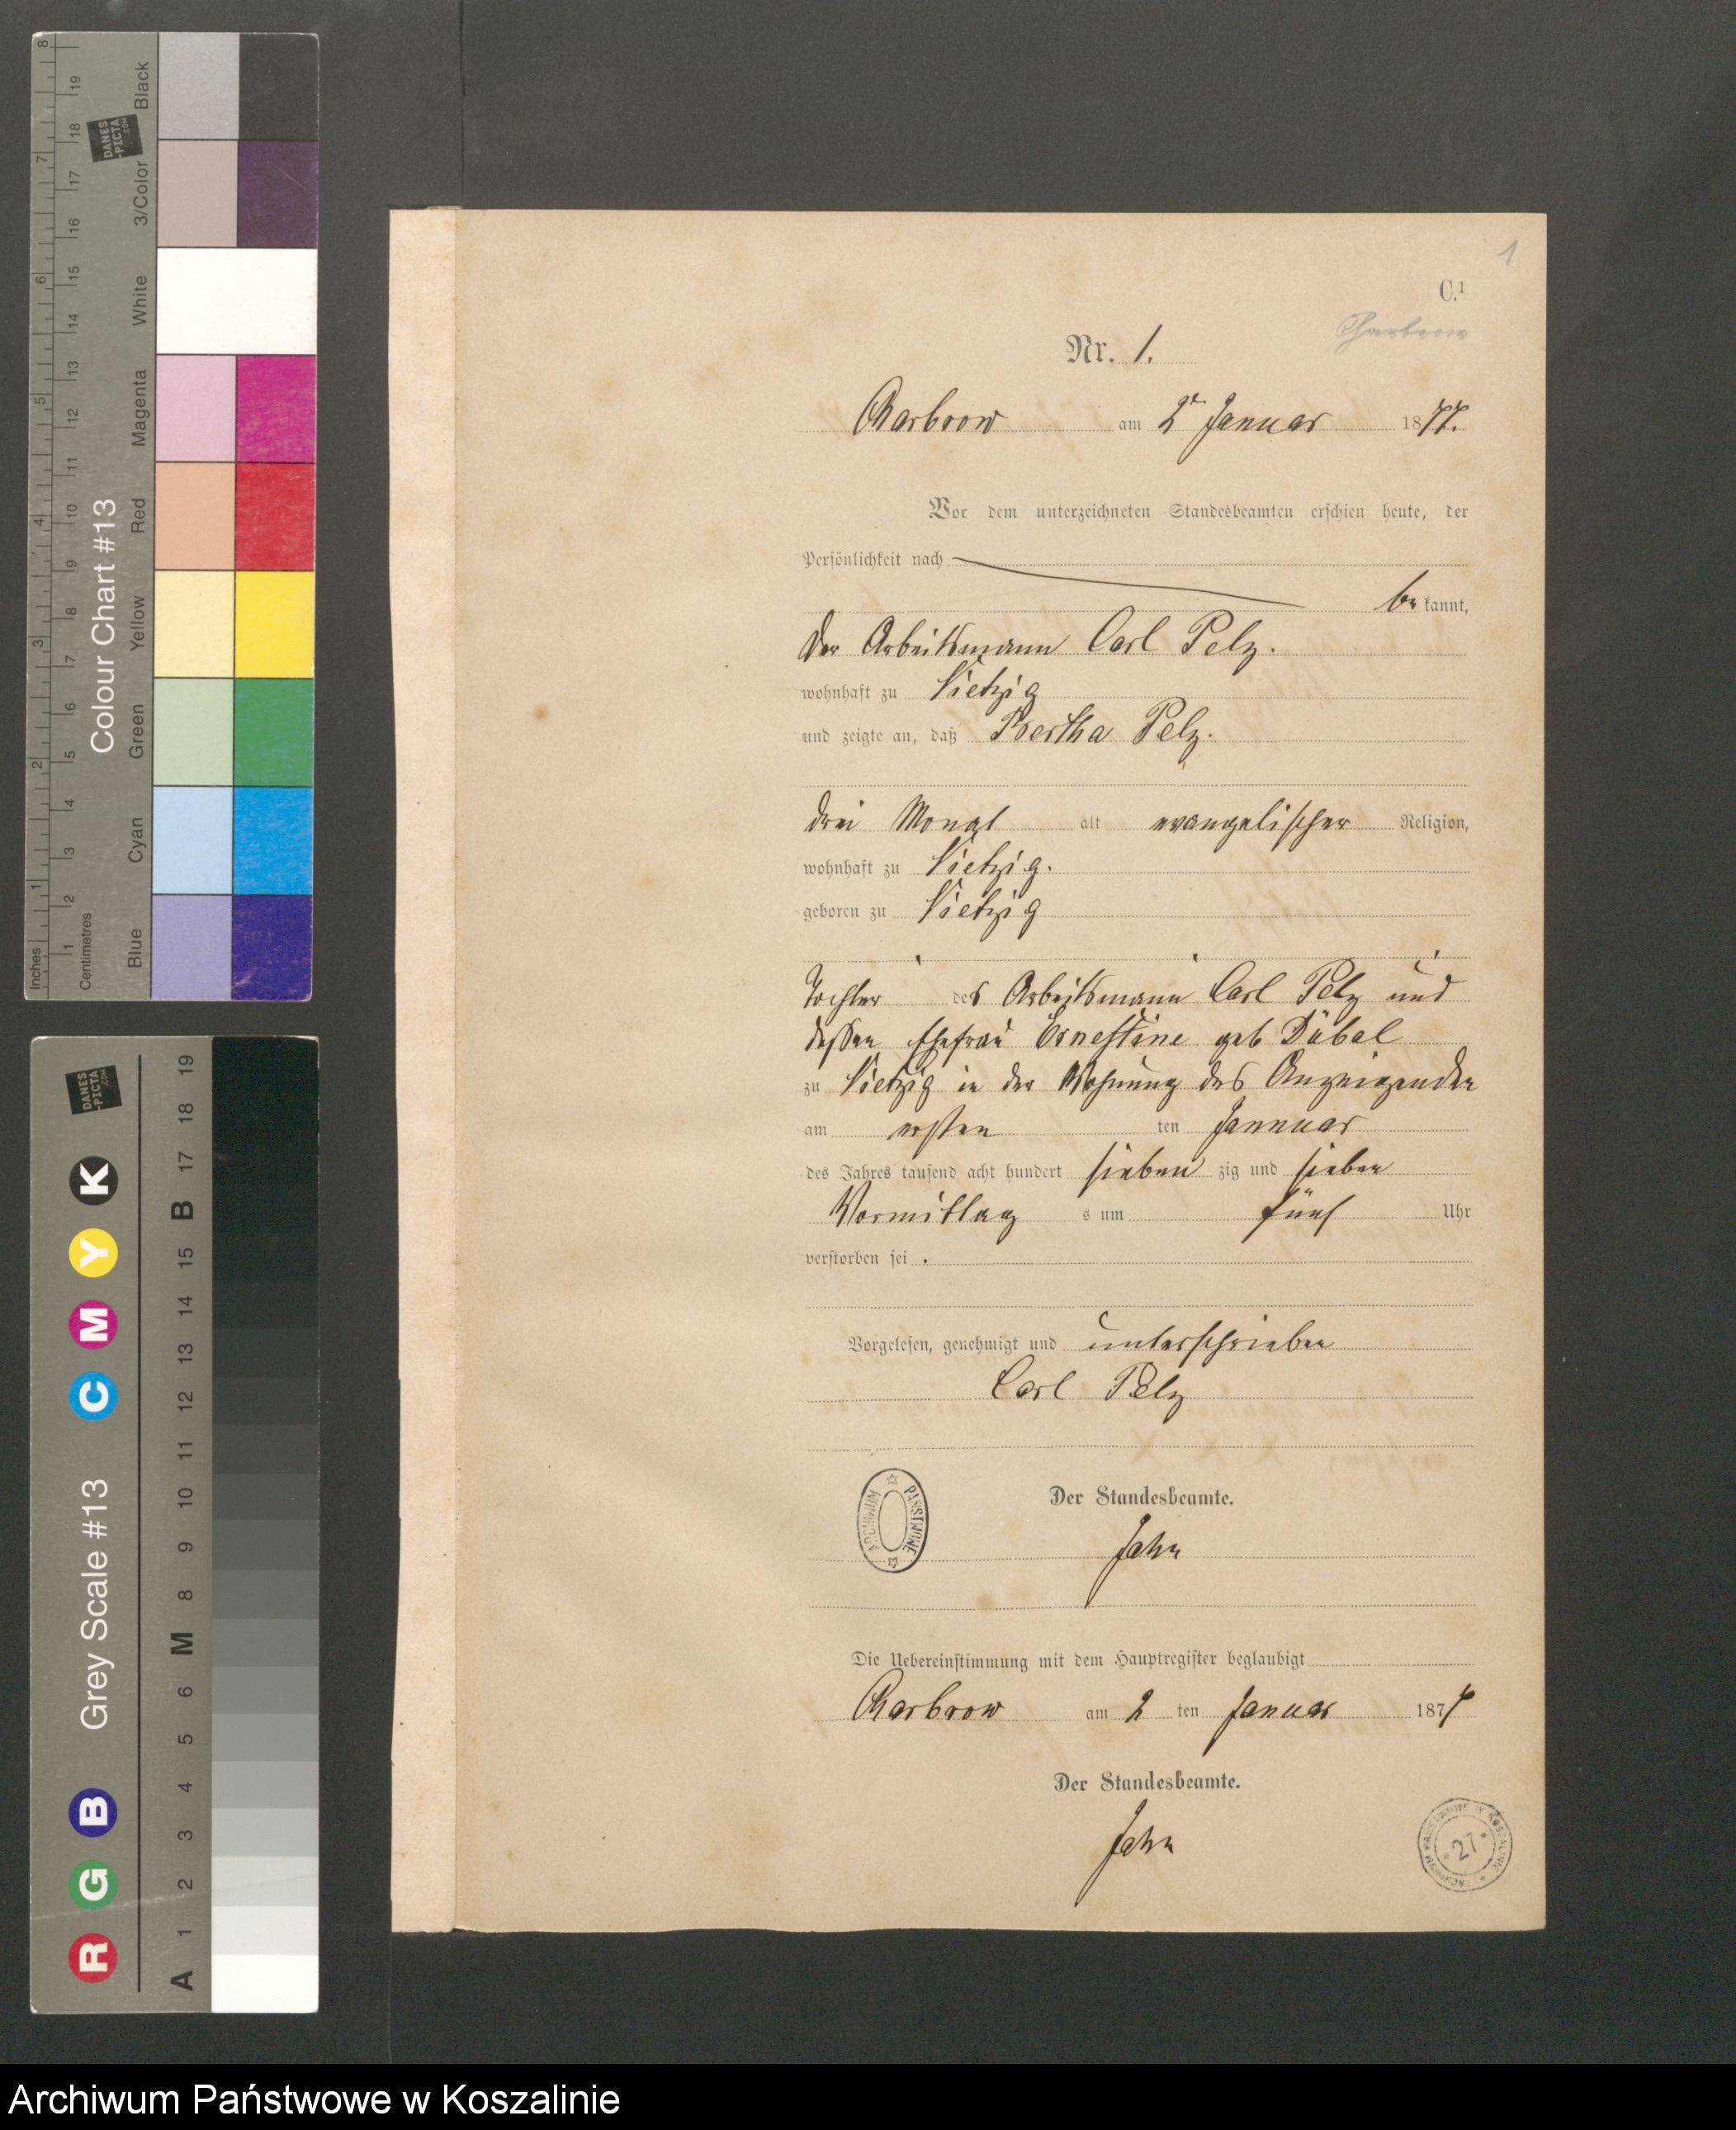 8
19
18
7
17
16
6
15
14
13
5
12
11
4
10
9
3
8
7
6
2
5
4
3
1
2
1
Inches
Centimetres
DANES
-PICTA
.COM
Colour Chart #13
Blue
Cyan
Green
Yellow
Red
Magenta
White
3/Color
Black
DANES
-PICTA
.COM
Grey Scale #13
R G B C M Y K
A 1 2 3 4 5 6 M 8 9 10 11 12 13 14 15 B 17 18 19
1
C.¹
Charbrow
Nr. 1.
Charbrow am 2t Januar 1877.
Vor dem unterzeichneten Standesbeamten erschien heute, der
Persönlichkeit nach
be kannt,
der Arbeitsmann Carl Pelz.
wohnhaft zu Vietzig
und zeigte an, daß Bertha Pelz.
drei Monat alt evangelischer Religion,
wohnhaft zu Vietzig.
geboren zu Vietzig
Tochter des Arbeitsmann Carl Pelz und
dessen Ehefrau Ernestine geb Dübal
zu Vietzig in der Wohnung des Anzeigenden
am ersten ten Jannuar
des Jahres tausend acht hundert sieben zig und sieben
Vormittag s um fünf Uhr
verstorben sei .
Vorgelesen, genehmigt und unterschrieben
Carl Pelz
ARCHIWUM PAŃSTWOWE
Der Standesbeamte.
Jahn
Die Uebereinstimmung mit dem Hauptregister beglaubigt
Charbrow am 2 ten Januar 1877
Der Standesbeamte.
Jahn
ARCHIWUM PAŃSTWOWE W KOSZALINIE
27
Archiwum Państwowe w Koszalinie